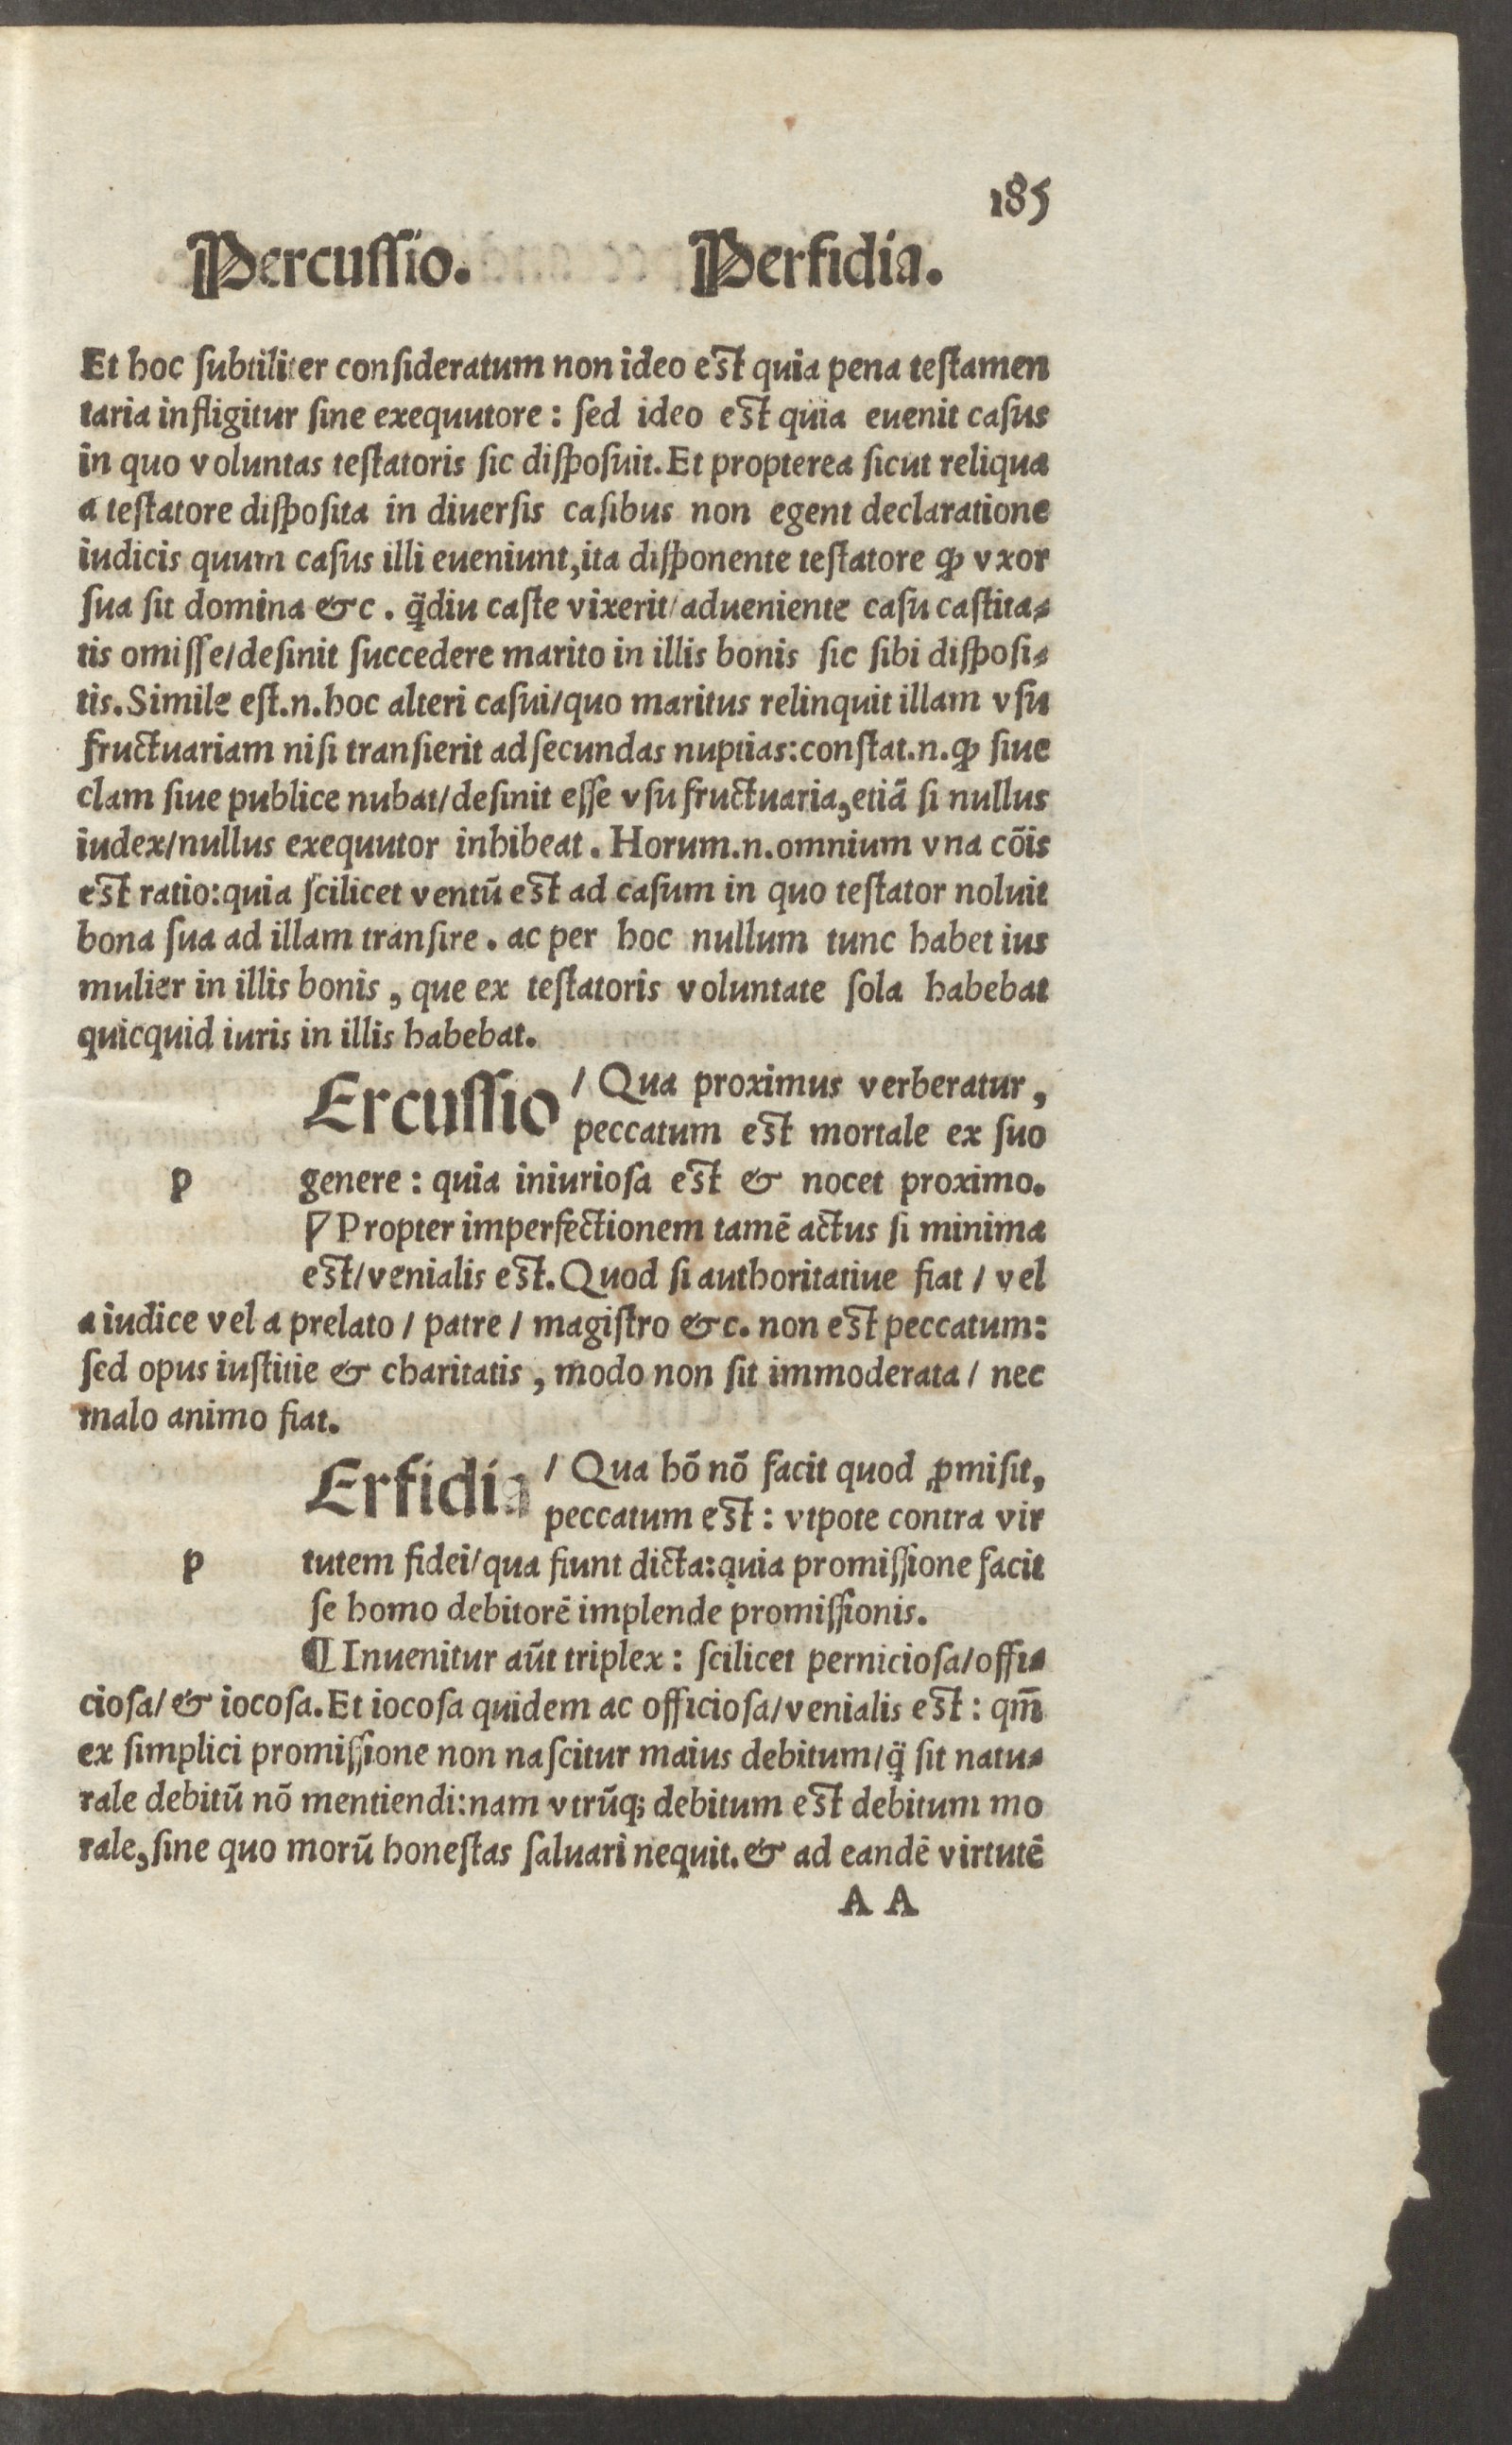 185
Percuſſio. Perfidia.
Et hoc ſubtiliter conſideratum non ideo est quia pena teſtamen
taria infligitur ſine exequutore : ſed ideo est quia euenit caſus
in quo voluntas teſtatoris ſic diſpoſuit. Et propterea ſicut reliqua
a teſtatore diſpoſita in diuerſis caſibus non egent declaratione
iudicis quum caſus illi eueniunt, ita diſponente teſtatore ꝙ vxor
ſua ſit domina &c . q̃diu caſte vixerit/adueniente caſu caſtita⸗
tis omiſſe/deſinit ſuccedere marito in illis bonis ſic ſibi diſpoſi⸗
tis. Simile eſt.n.hoc alteri caſui/quo maritus relinquit illam vſu
fructuariam niſi tranſierit ad ſecundas nuptias:conſtat.n.ꝙ ſiue
clam ſiue publice nubat/deſinit eſſe vſufructuaria, etiã ſi nullus
iudex/nullus exequutor inhibeat . Horum.n.omnium vna cõis
est ratio:quia ſcilicet ventũ est ad caſum in quo teſtator noluit
bona ſua ad illam tranſire . ac per hoc nullum tunc habet ius
mulier in illis bonis , que ex teſtatoris voluntate ſola habebat
quicquid iuris in illis habebat.
Ercuſſio / Qua proximus verberatur ,
peccatum est mortale ex ſuo
p genere : quia iniurioſa est & nocet proximo.
Propter imperfectionem tamẽ actus ſi minima
est/venialis est. Quod ſi authoritatiue fiat / vel
a iudice vel a prelato / patre / magiſtro &c. non est peccatum:
ſed opus iuſtitie & charitatis , modo non ſit immoderata / nec
malo animo fiat.
Erfidia / Qua hõ nõ facit quod ꝓmiſit,
peccatum est : vtpote contra vir
p tutem fidei/qua fiunt dicta:quia promiſſione facit
ſe homo debitorẽ implende promiſſionis.
¶ Inuenitur aũt triplex : ſcilicet pernicioſa/offi⸗
cioſa/ & iocoſa. Et iocoſa quidem ac officioſa/venialis est : qm̃
ex ſimplici promiſſione non naſcitur maius debitum/q̃ ſit natu⸗
rale debitũ nõ mentiendi:nam vtrũq; debitum est debitum mo
rale, ſine quo morũ honeſtas ſaluari nequit. & ad eandẽ virtutẽ
A A